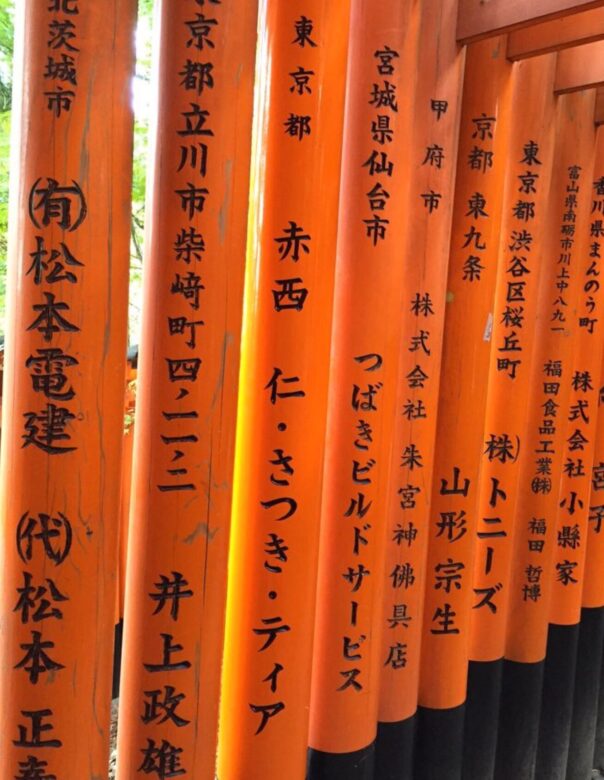 北茨城市 (有)松本電建 (代)松本 正
京都立川市柴﨑町四ノ一一ノ二 井上政雄
東京都 赤西 仁・さつき・ティア
宮城県仙台市 つばきビルドサービス
甲府市 株式会社 朱宮神佛具店
京都 東九条 山形宗生
東京都 渋谷区桜丘町 (株)トニーズ
富山県南砺市川上中八九一 福田食品工業㈱ 福田 哲博
香川県まんのう町 株式会社 小縣家
宮子